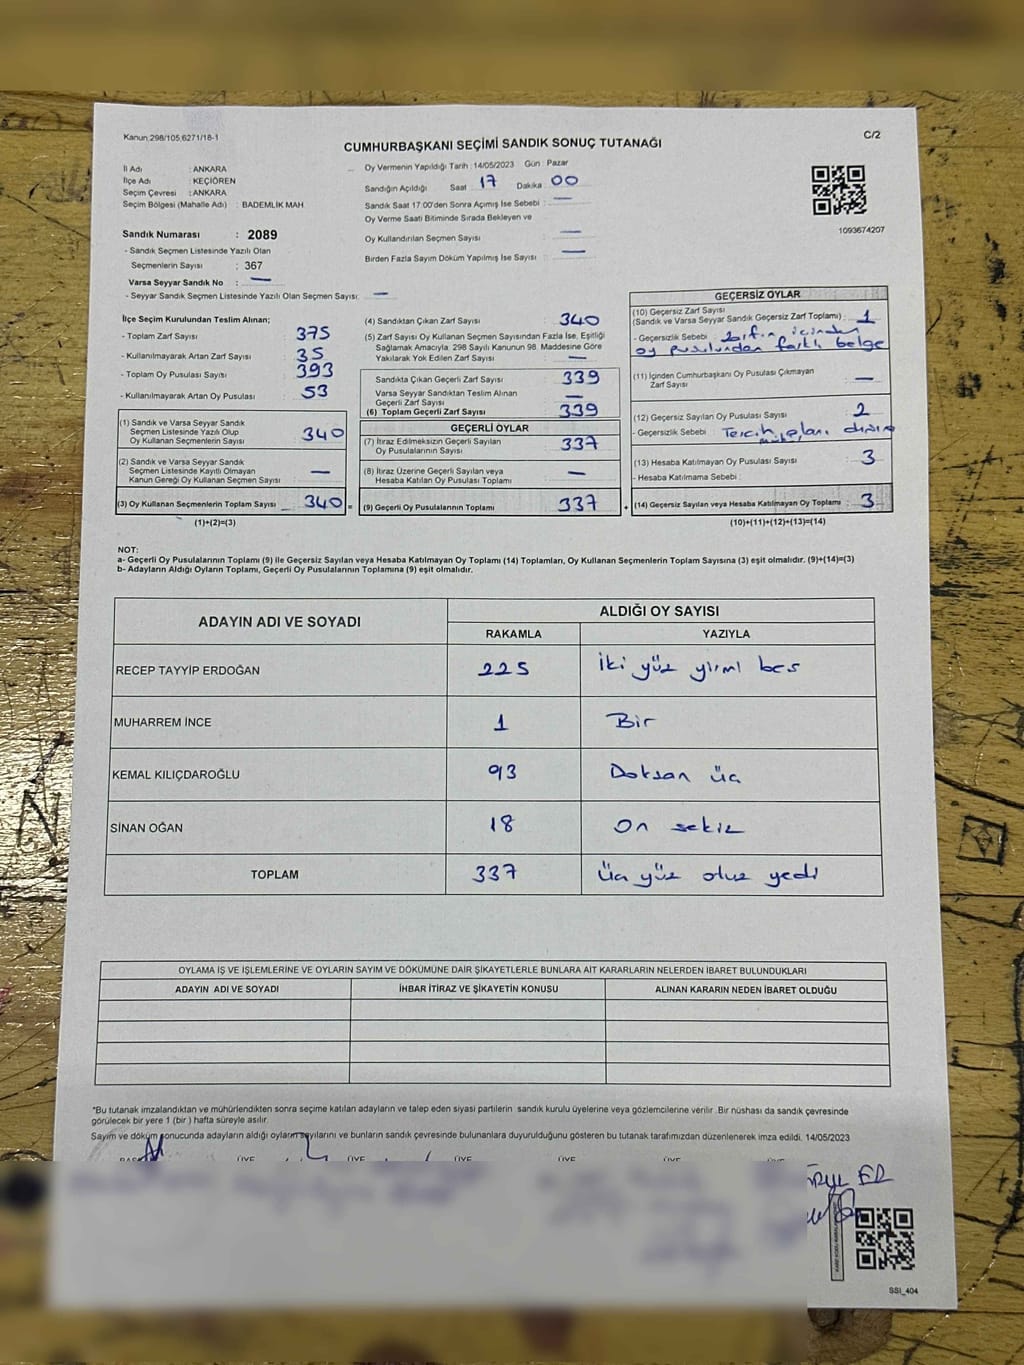 Kanun 298/105,6271/18-1
CUMHURBAŞKANI SEÇİMİ SANDIK SONUÇ TUTANAĞI
C/2
İl Adı : ANKARA
İlçe Adı : KEÇİÖREN
Seçim Çevresi : ANKARA
Seçim Bölgesi (Mahalle Adı) : BADEMLİK MAH
Oy Vermenin Yapıldığı Tarih : 14/05/2023 Gün : Pazar
Sandığın Açıldığı Saat 17 Dakika 00
Sandık Saat 17:00'den Sonra Açımış İse Sebebi : —
Oy Verme Saati Bitiminde Sırada Bekleyen ve
Oy Kullandırılan Seçmen Sayısı : —
Birden Fazla Sayım Döküm Yapılmış İse Sayısı : —
1093674207
Sandık Numarası : 2089
- Sandık Seçmen Listesinde Yazılı Olan
Seçmenlerin Sayısı : 367
Varsa Seyyar Sandık No : —
- Seyyar Sandık Seçmen Listesinde Yazılı Olan Seçmen Sayısı: —
İlçe Seçim Kurulundan Teslim Alınan;
- Toplam Zarf Sayısı : 375
- Kullanılmayarak Artan Zarf Sayısı : 35
- Toplam Oy Pusulası Sayısı : 393
- Kullanılmayarak Artan Oy Pusulası : 53
(1) Sandık ve Varsa Seyyar Sandık
Seçmen Listesinde Yazılı Olup
Oy Kullanan Seçmenlerin Sayısı : 340
(2) Sandık ve Varsa Seyyar Sandık
Seçmen Listesinde Kayıtlı Olmayan
Kanun Gereği Oy Kullanan Seçmen Sayısı : —
(3) Oy Kullanan Seçmenlerin Toplam Sayısı 340 =
(1)+(2)=(3)
(4) Sandıktan Çıkan Zarf Sayısı : 340
(5) Zarf Sayısı Oy Kullanan Seçmen Sayısından Fazla İse, Eşitliği
Sağlamak Amacıyla, 298 Sayılı Kanunun 98. Maddesine Göre
Yakılarak Yok Edilen Zarf Sayısı : —
Sandıkta Çıkan Geçerli Zarf Sayısı : 339
Varsa Seyyar Sandıktan Teslim Alınan
Geçerli Zarf Sayısı : —
(6) Toplam Geçerli Zarf Sayısı : 339
GEÇERLİ OYLAR
(7) İtiraz Edilmeksizin Geçerli Sayılan
Oy Pusulalarının Sayısı : 337
(8) İtiraz Üzerine Geçerli Sayılan veya
Hesaba Katılan Oy Pusulası Toplamı : —
(9) Geçerli Oy Pusulalarının Toplamı : 337 +
GEÇERSİZ OYLAR
(10) Geçersiz Zarf Sayısı
(Sandık ve Varsa Seyyar Sandık Geçersiz Zarf Toplamı) : 1
- Geçersizlik Sebebi : Zarfın içinden
oy pusulundan farklı belge
(11) İçinden Cumhurbaşkanı Oy Pusulası Çıkmayan
Zarf Sayısı : —
(12) Geçersiz Sayılan Oy Pusulası Sayısı : 2
- Geçersizlik Sebebi : Tercih alanı dışına
(13) Hesaba Katılmayan Oy Pusulası Sayısı : 3
- Hesaba Katılmama Sebebi :
(14) Geçersiz Sayılan veya Hesaba Katılmayan Oy Toplamı : 3
(10)+(11)+(12)+(13)=(14)
NOT:
a- Geçerli Oy Pusulalarının Toplamı (9) ile Geçersiz Sayılan veya Hesaba Katılmayan Oy Toplamı (14) Toplamları, Oy Kullanan Seçmenlerin Toplam Sayısına (3) eşit olmalıdır. (9)+(14)=(3)
b- Adayların Aldığı Oyların Toplamı, Geçerli Oy Pusulalarının Toplamına (9) eşit olmalıdır.
ADAYIN ADI VE SOYADI
ALDIĞI OY SAYISI
RAKAMLA YAZIYLA
RECEP TAYYİP ERDOĞAN 225 İki yüz yirmi beş
MUHARREM İNCE 1 Bir
KEMAL KILIÇDAROĞLU 93 Doksan üç
SİNAN OĞAN 18 On sekiz
TOPLAM 337 Üç yüz otuz yedi
OYLAMA İŞ VE İŞLEMLERİNE VE OYLARIN SAYIM VE DÖKÜMÜNE DAİR ŞİKAYETLERLE BUNLARA AİT KARARLARIN NELERDEN İBARET BULUNDUKLARI
ADAYIN ADI VE SOYADI İHBAR İTİRAZ VE ŞİKAYETİN KONUSU ALINAN KARARIN NEDEN İBARET OLDUĞU
*Bu tutanak imzalandıktan ve mühürlendikten sonra seçime katılan adayların ve talep eden siyasi partilerin sandık kurulu üyelerine veya gözlemcilerine verilir .Bir nüshası da sandık çevresinde
görülecek bir yere 1 (bir ) hafta süreyle asılır.
Sayım ve döküm sonucunda adayların aldığı oyların sayılarını ve bunların sandık çevresinde bulunanlara duyurulduğunu gösteren bu tutanak tarafımızdan düzenlenerek imza edildi. 14/05/2023
ÜYE ÜYE ÜYE ÜYE ÜYE ÜYE
SSİ_404